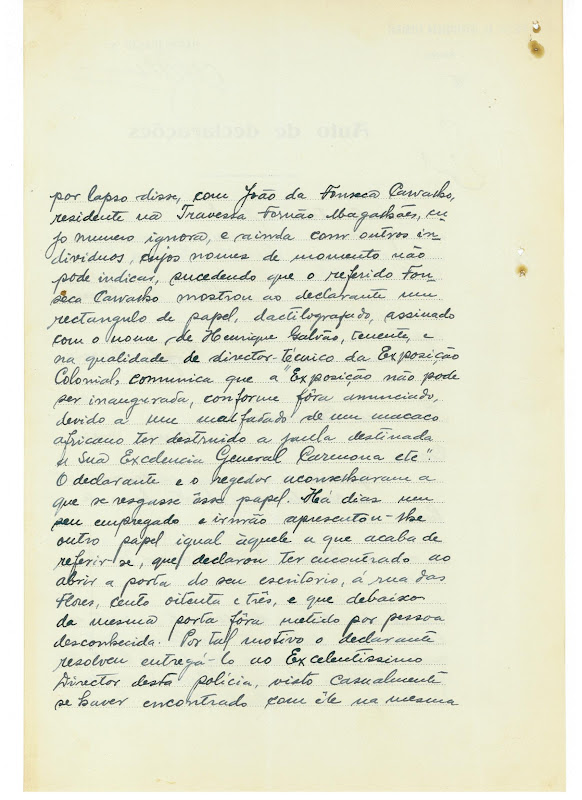 Auto de declarações
por lapso disse, com João da Fonseca Carvalho,
residente na Travessa Fernão Magalhães, cu
jo numero ignora, e ainda com outros in-
dividuos, cujos nomes de momento não
pode indicar, sucedendo que o referido Fon-
seca Carvalho mostrou ao declarante um
rectangulo de papel, dactilografado, assinado
com o nome de Henrique Galvão, tenente, e
na qualidade de director-técnico da Exposição
Colonial, comunica que a "Exposição não pode
ser inaugurada, conforme fôra anunciado,
devido a um malfadado de um macaco
africano ter destruido a jaula destinada
a Sua Excelencia General Carmona etc".
O declarante e o regedor aconselharam a
que se rasgasse êsse papel. Há dias um
seu empregado e irmão apresentou-lhe
outro papel igual àquele a que acaba de
referir-se, que declarou ter encontrado ao
abrir a porta do seu escritorio, á rua das
Flores, cento oitenta e três, e que debaixo
da mesma porta fôra metido por pessoa
desconhecida. Por tal motivo o declarante
resolveu entregá-lo ao Excelentissimo
Director desta polícia, visto casualmente
se haver encontrado com êle na mesma